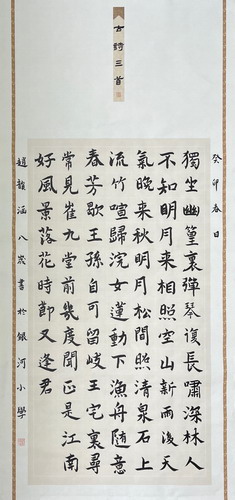 古詩三首
癸卯春日
獨坐幽篁裏彈琴復長嘯深林人
不知明月來相照空山新雨後天
氣晚來秋明月松間照清泉石上
流竹喧歸浣女蓮動下漁舟隨意
春芳歇王孫自可留岐王宅裏尋
常見崔九堂前幾度聞正是江南
好風景落花時節又逢君
趙韻涵八歲書於銀河小學